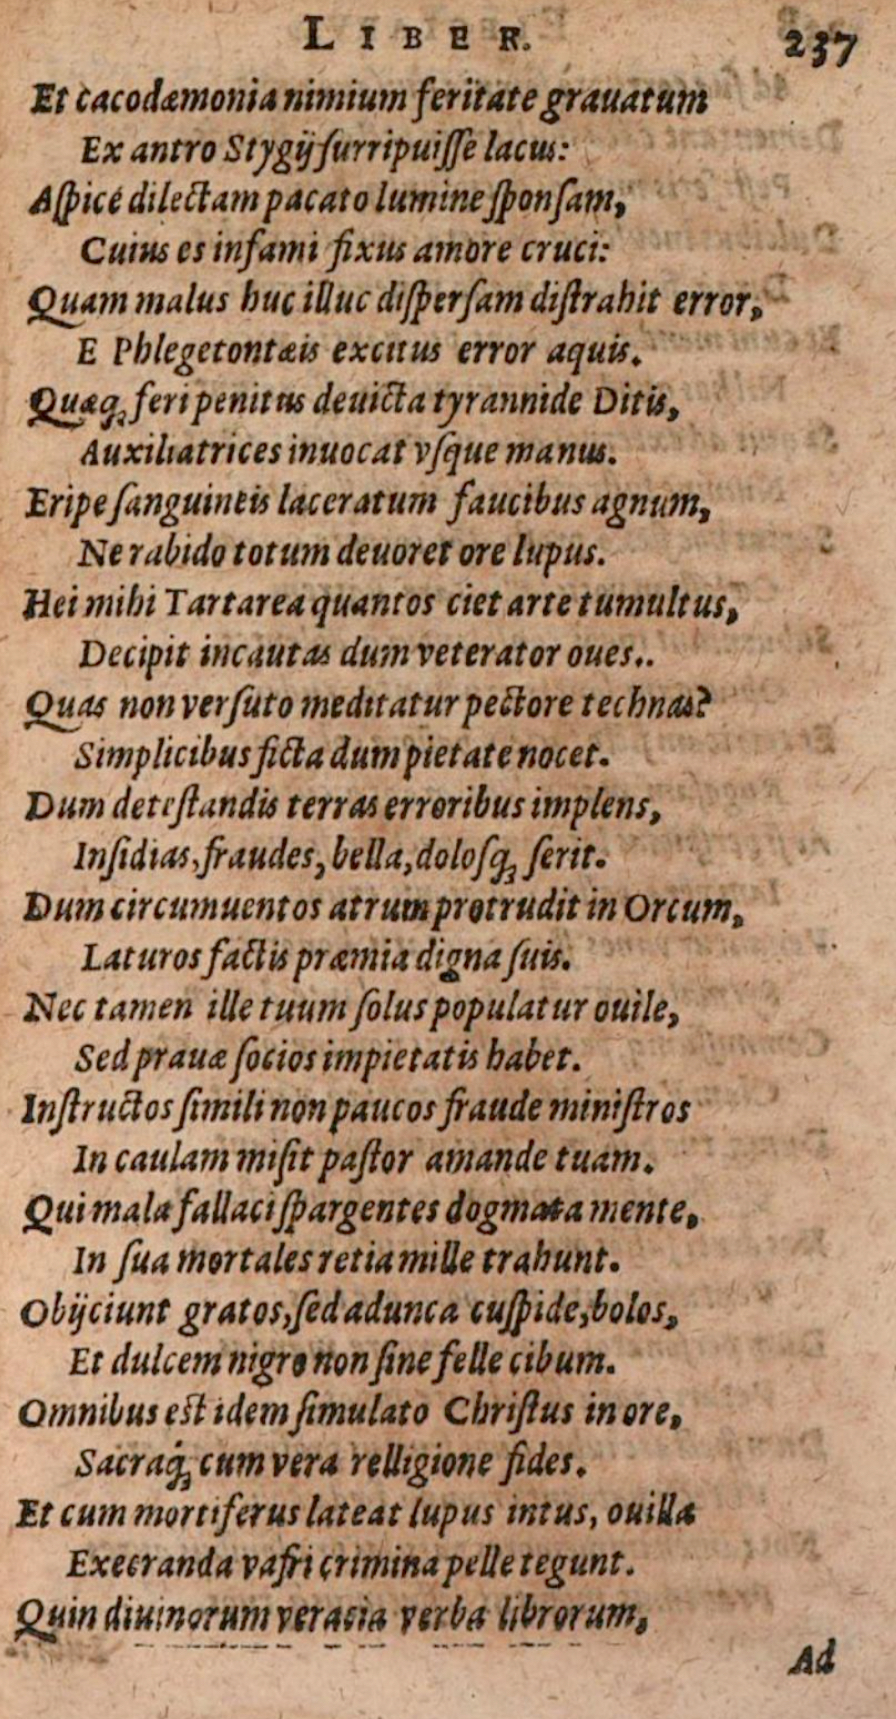 LIBER. 237
Et cacodæmonia nimium feritate grauatum
Ex antro Stygij ſurripuiſſe lacus:
Aſpice dilectam pacato lumine ſponſam,
Cuius es infami fixus amore cruci:
Quam malus huc illuc diſperſam diſtrahit error,
E Phlegetontæis excitus error aquis.
Quæq; feri penitus deuicta tyrannide Ditis,
Auxiliatrices inuocat vſque manus.
Eripe ſanguineis laceratum faucibus agnum,
Ne rabido totum deuoret ore lupus.
Hei mihi Tartarea quantos ciet arte tumultus,
Decipit incautas dum veterator oues..
Quas non verſuto meditatur pectore technas?
Simplicibus ficta dum pietate nocet.
Dum deteſtandis terras erroribus implens,
Inſidias, fraudes, bella, doloſq; ſerit.
Dum circumuentos atrum protrudit in Orcum,
Laturos factis præmia digna ſuis.
Nec tamen ille tuum ſolus populatur ouile,
Sed prauæ ſocios impietatis habet.
Inſtructos ſimili non paucos fraude miniſtros
In caulam miſit paſtor amande tuam.
Qui mala fallaci ſpargentes dogmata mente,
In ſua mortales retia mille trahunt.
Obijciunt gratos, ſed adunca cuſpide, bolos,
Et dulcem nigro non ſine felle cibum.
Omnibus eſt idem ſimulato Chriſtus in ore,
Sacraq́; cum vera relligione fides.
Et cum mortiferus lateat lupus intus, ouilla
Execranda vafri crimina pelle tegunt.
Quin diuinorum veracia verba librorum,
Ad